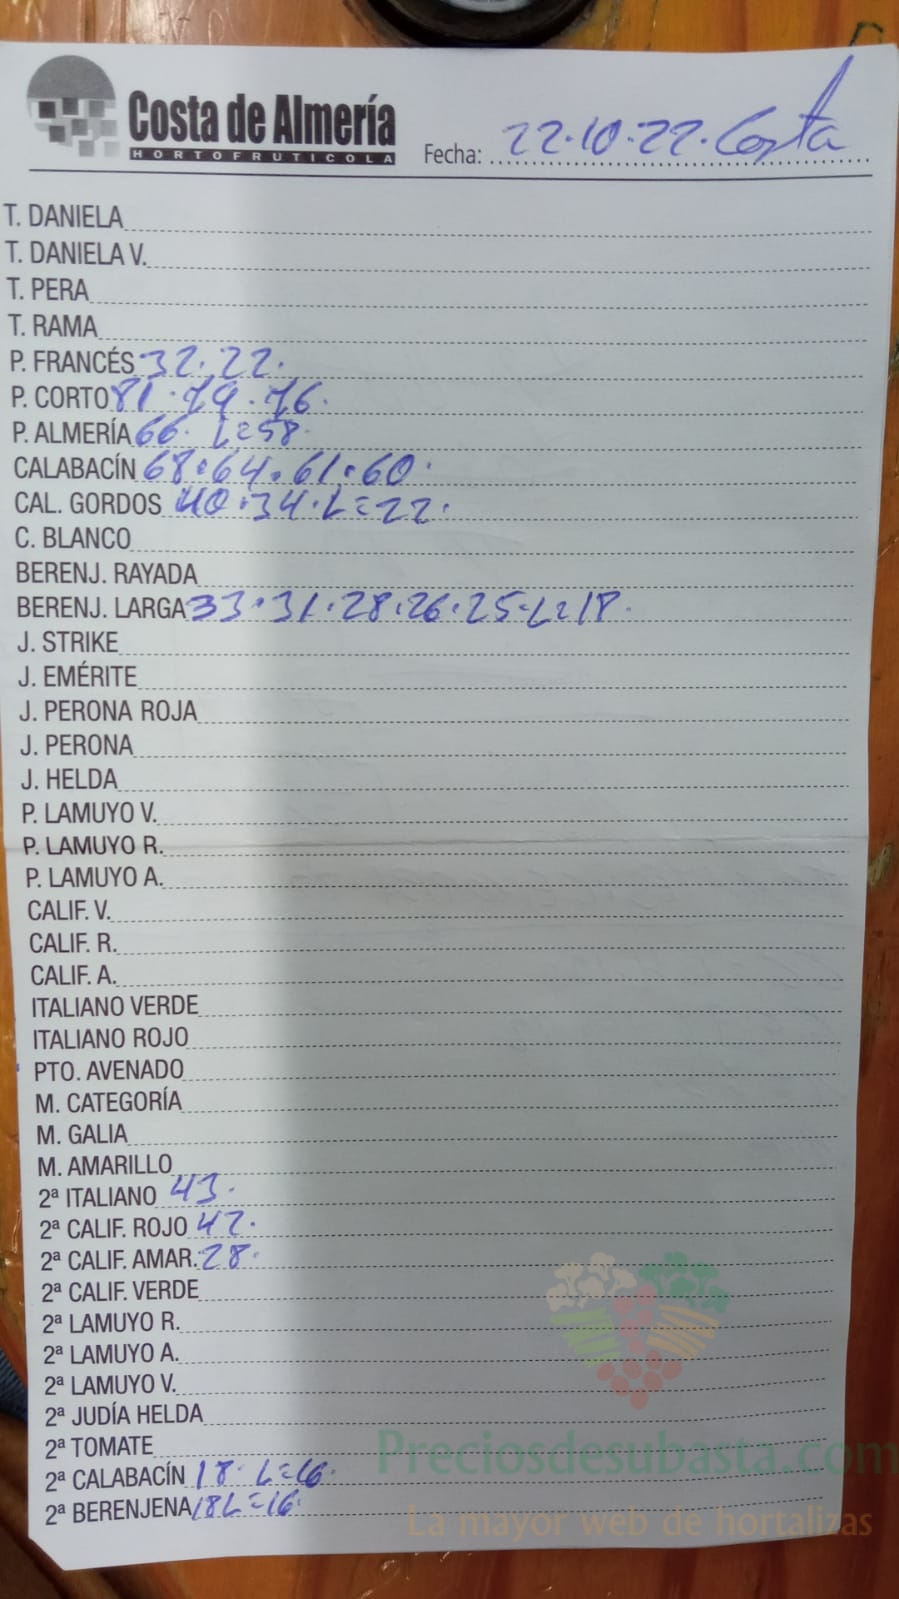 Costa de Almería
HORTOFRUTICOLA
Fecha: 22.10.22. Costa
T. DANIELA
T. DANIELA V.
T. PERA
T. RAMA
P. FRANCÉS 32.22.
P. CORTO 81.79.76.
P. ALMERÍA 66. L=58.
CALABACÍN 68.64.61.60.
CAL. GORDOS 40.34.L=22.
C. BLANCO
BERENJ. RAYADA
BERENJ. LARGA 33.31.28.26.25.L=18.
J. STRIKE
J. EMÉRITE
J. PERONA ROJA
J. PERONA
J. HELDA
P. LAMUYO V.
P. LAMUYO R.
P. LAMUYO A.
CALIF. V.
CALIF. R.
CALIF. A.
ITALIANO VERDE
ITALIANO ROJO
PTO. AVENADO
M. CATEGORÍA
M. GALIA
M. AMARILLO
2ª ITALIANO 43.
2ª CALIF. ROJO 42.
2ª CALIF. AMAR. 28.
2ª CALIF. VERDE
2ª LAMUYO R.
2ª LAMUYO A.
2ª LAMUYO V.
2ª JUDÍA HELDA
2ª TOMATE
2ª CALABACÍN 18. L=16.
2ª BERENJENA 18 L=16.
Preciosdesubasta.com
La mayor web de hortalizas